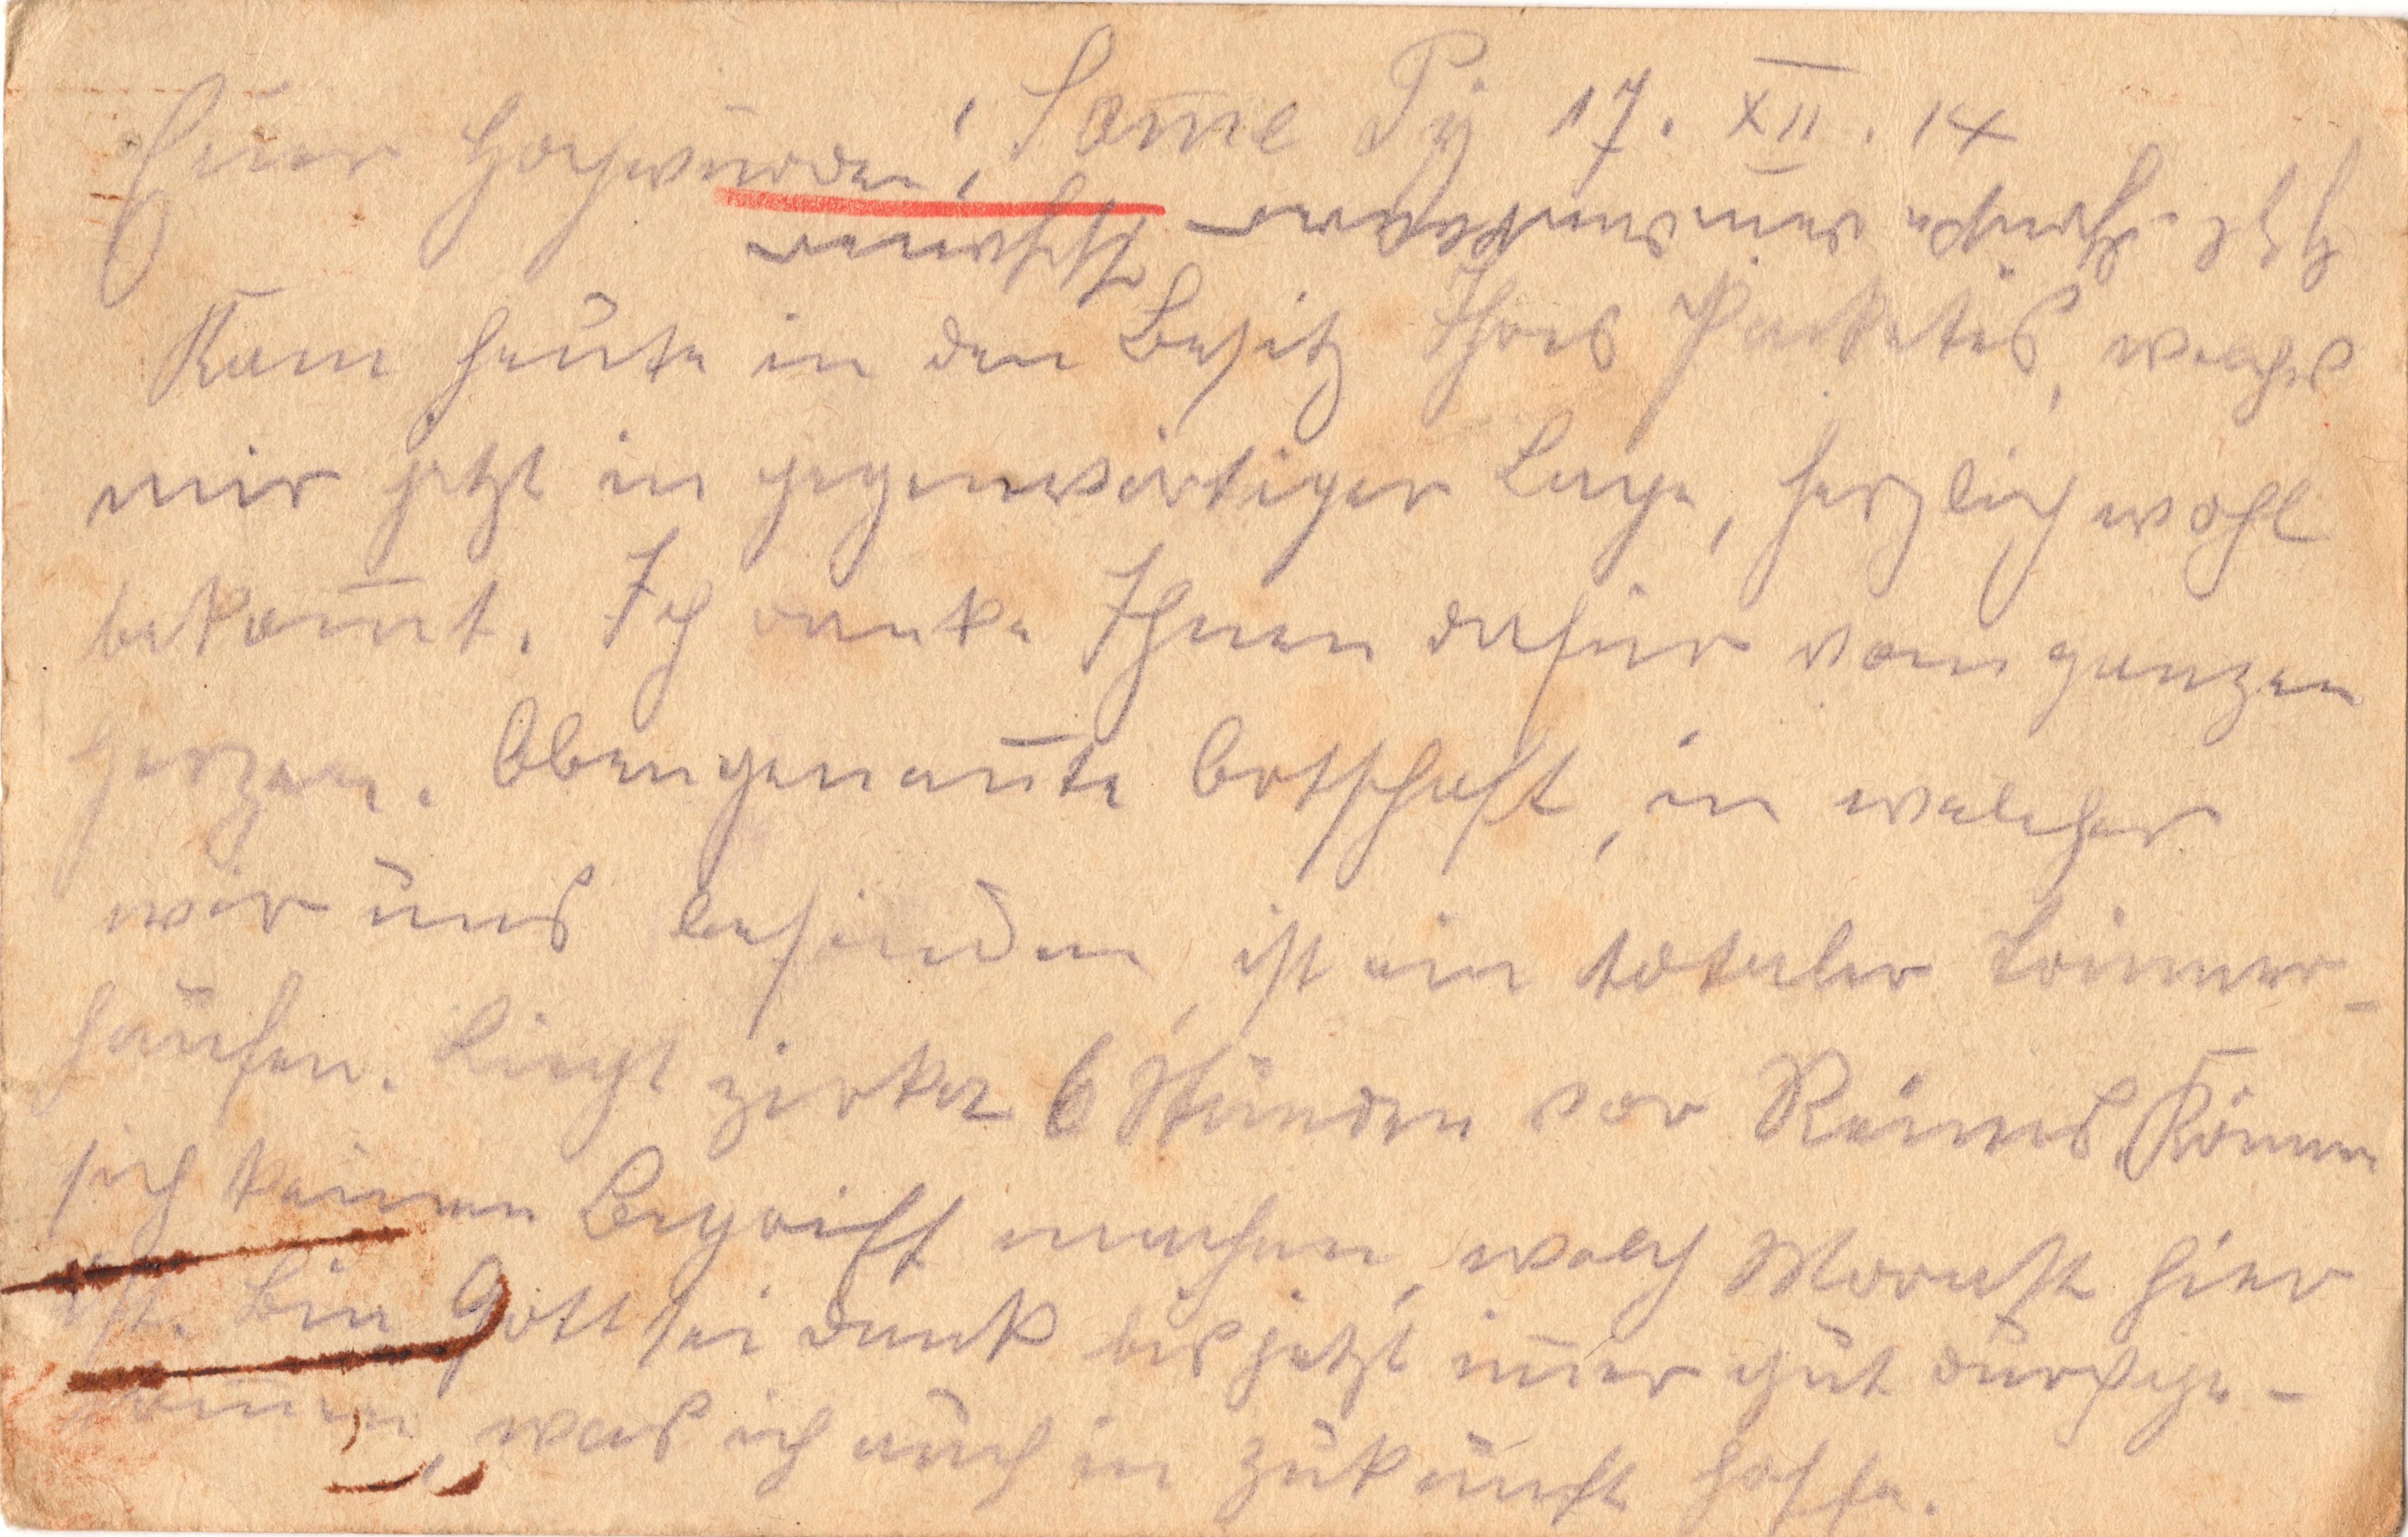 Euer Hochwürden! Som̄e Py 17. XII. 14
Grüße
Kam heute in den Besitz Ihres Packetes, welches
mir jetzt in gegenwärtiger Lage, herzlich wohl
bekom̄t. Ich danke Ihnen dafür vom ganzen
Herzen. Obengenan̄te Ortschaft, in welcher
wir uns befinden, ist ein totaler Trümmer-
haufen. Liegt zirka 6 Stunden vor Reims. Können
sich keinen Begriff machen, welch Morast hier
ist. Bin Gott sei dank bis jetzt im̄er gut durchge-
kom̄en, was ich auch in Zukunft hoffe.